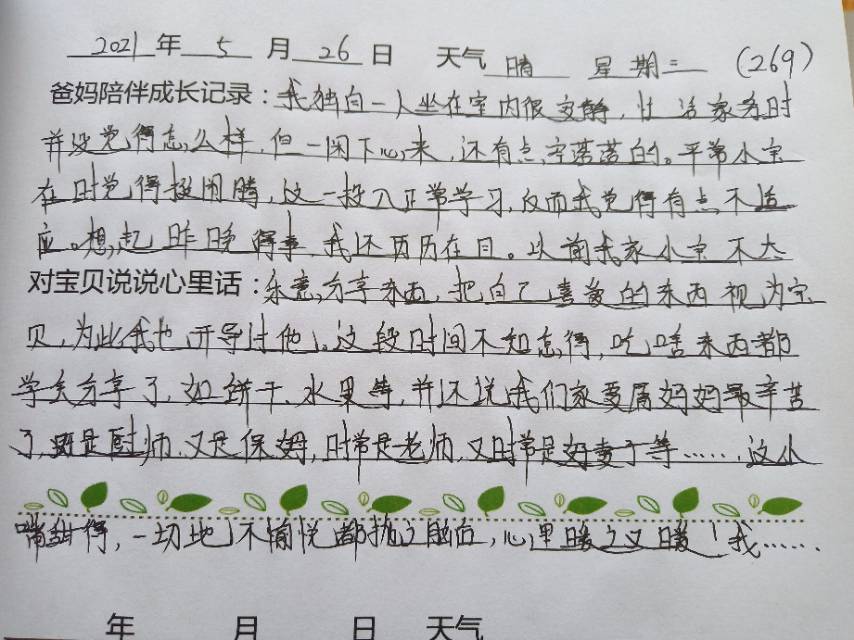 2021年 5 月 26 日 天气 晴 星期三 (269)
爸妈陪伴成长记录：我独自一人坐在室内很安静，忙活家务时
并没觉得怎么样，但一闲下心来，还有点空荡荡的。平常小宝
在时觉得挺闹腾，这一投入正常学习，反而我觉得有点不适
应。想起昨晚得事，我还历历在目。以前我家小宝不大
对宝贝说说心里话：乐意分享东西，把自己喜爱的东西视为宝
贝，为此我也开导过他。这段时间不知怎得，吃啥东西都
学会分享了，如饼干、水果等，并还说我们家要属妈妈最辛苦
了，既是厨师，又是保姆，时常是老师，又时常是好妻子等……，这小
嘴甜得，一切地不愉悦都抛之脑后，心里暖之又暖！我……
年 月 日 天气